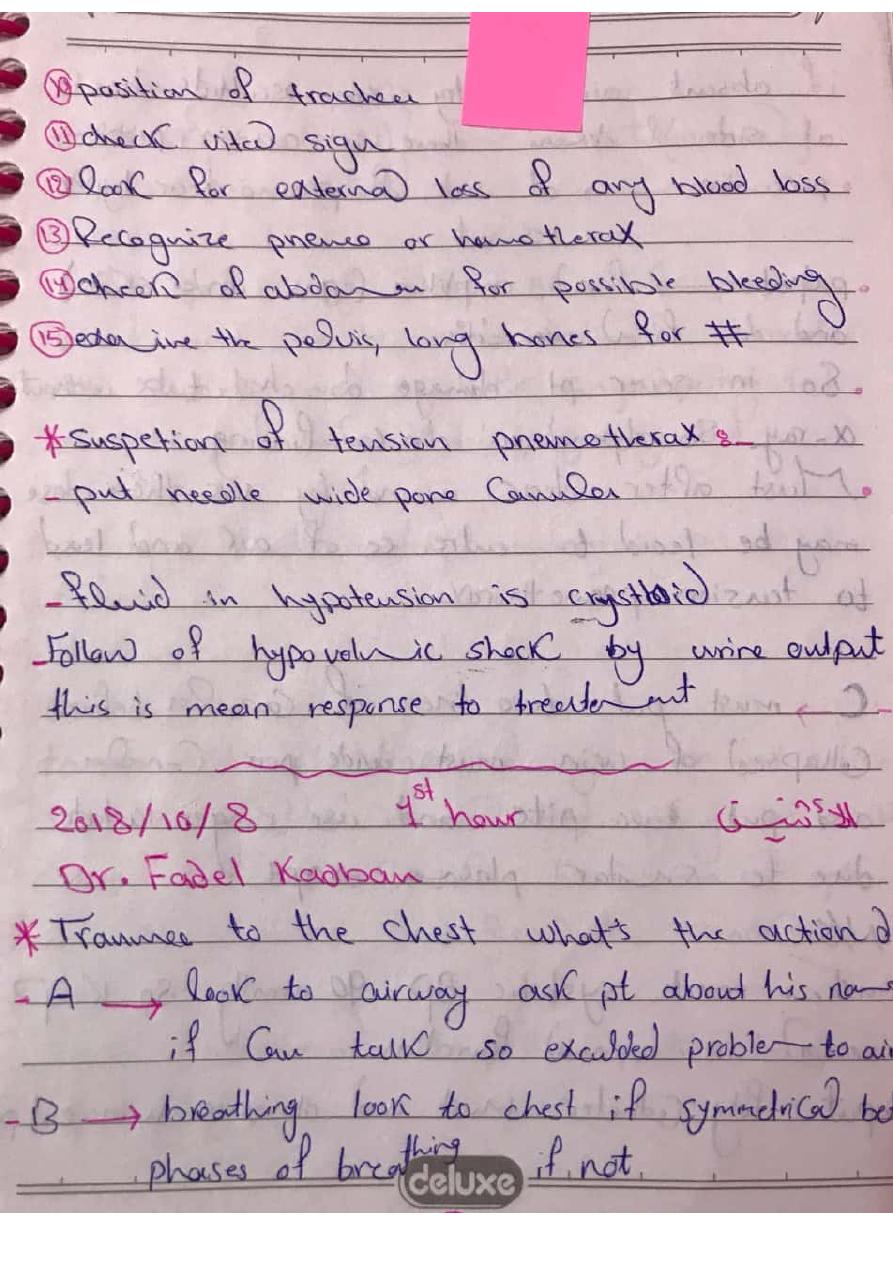 ⑩ position of trachea
⑪ check vital sign
⑫ look for external loss of any blood loss
⑬ Recognize pnemo or hemotherax
⑭ check of abdomen for possible bleeding.
⑮ examine the pelvis, long bones for #
* suspetion of tension pnemotherax :-
- put needle wide pore Canula.
- fluid in hypotension is crystloid
- Follow of hypovolmic shock by urine output
this is mean response to treatment
2018/10/8 1st hour الاثنين
Dr. Fadel
* Trauma to the chest what's the action
- A → look to airway ask pt about his
if Can talk so exculded problem to
- B → breathing look to chest if symmetrical
phases of breathing if not
deluxe